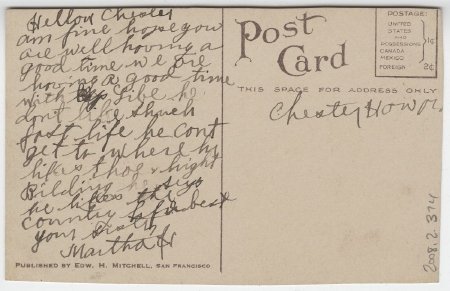 Hellow Chester
am fine hope you
are well having a
good time we are
having a good time
with
dont like
fast life he cont
get to where he
likes thos hight
Bilding he says
he likes the
country best
your Sister
Martha
Post
Card
THIS SPACE FOR ADDRESS ONLY
POSTAGE:
UNITED
STATES
AND
POSSESSIONS
CANADA
MEXICO
1¢
FOREIGN 2¢
Chester
PUBLISHED BY EDW. H. MITCHELL, SAN FRANCISCO
2008.2.374